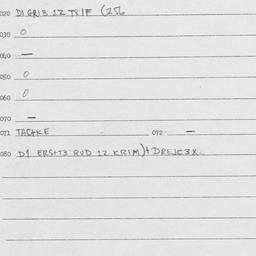 020 D1 GRIB 1Z TKIF (256
030 0
040 —
050 0
060 0
070 —
071 TACHKE 072 —
080 D1 ERSHT3 RUD 12 KRIM)+ DREJC3X.